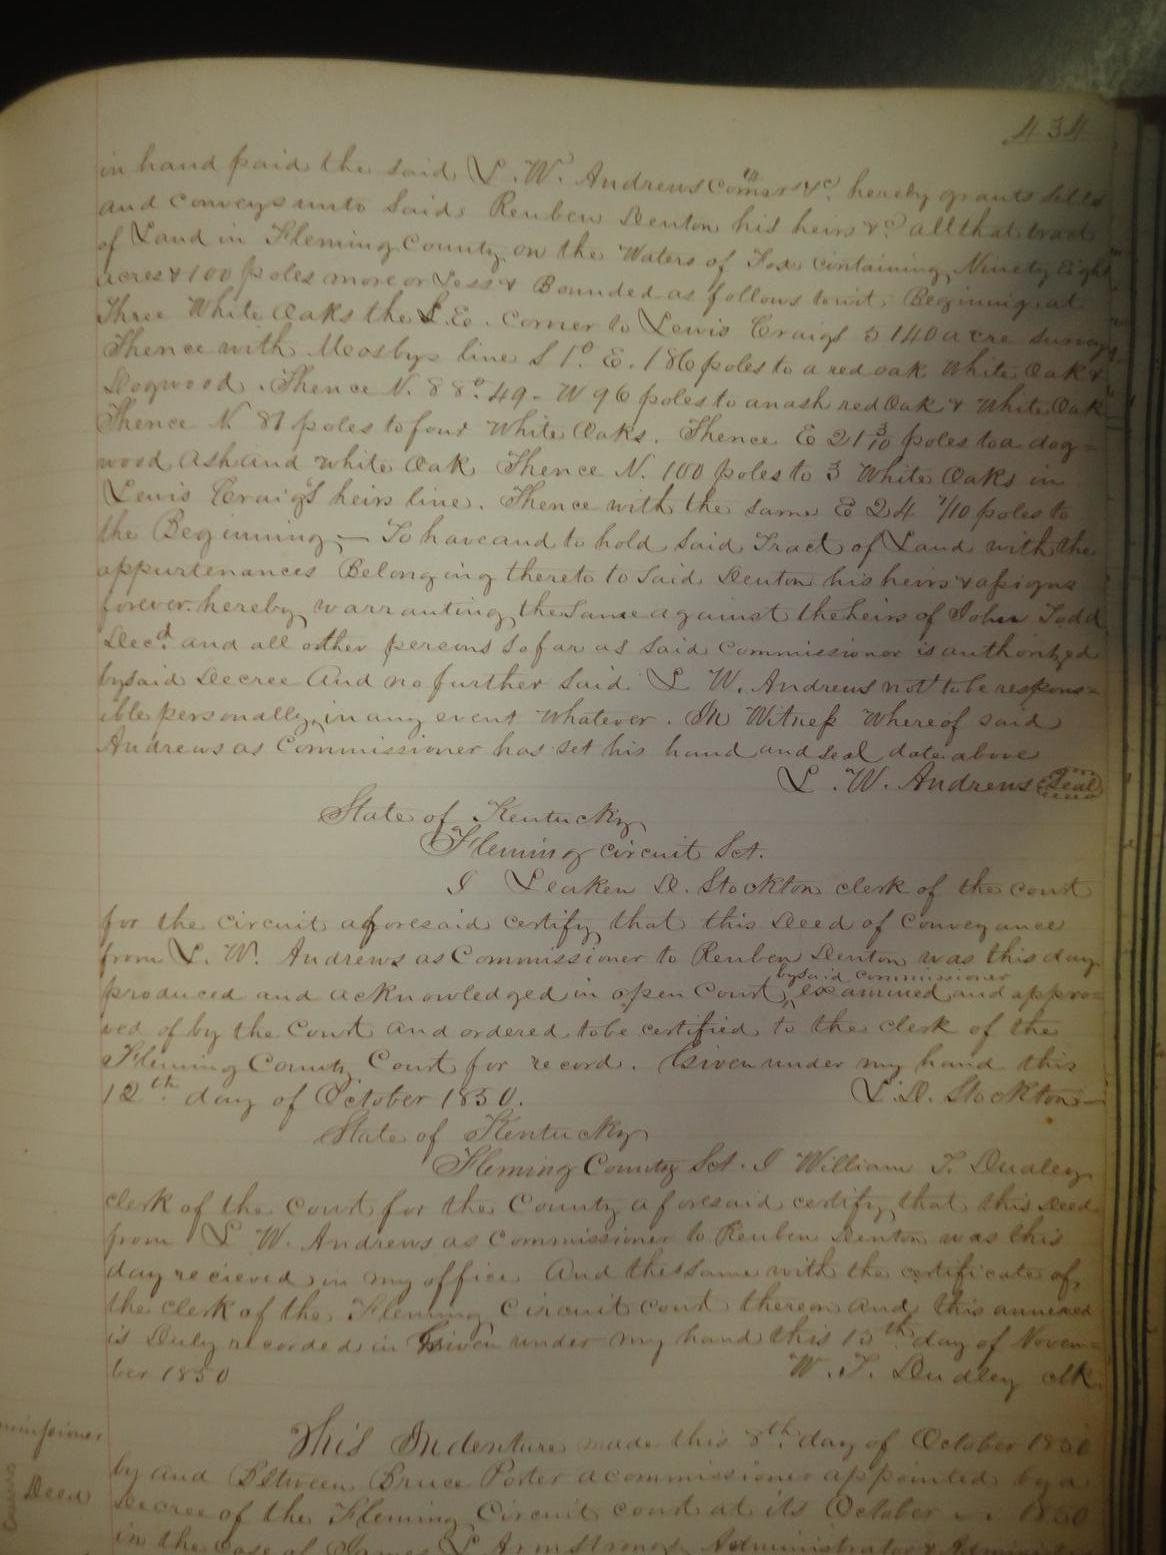 434
in hand paid the said L. W. Andrews Comsr &c. hereby grants sells
and conveys unto said Reuben Denton his heirs &c all that tract
of Land in Fleming County on the Waters of Fox containing Ninety Eight
acres & 100 poles more or Less & Bounded as follows to wit. Beginning at
Three White Oaks the S.E. corner to Lewis Craigs 5140 acre survey
Thence with Mosbys line S 1° E. 186 poles to a red oak White Oak &
Dogwood. Thence N. 88° 49- W 96 poles to an ash red Oak & White Oak
Thence N 87 poles to four White Oaks. Thence E 21 3/10 poles to a dog=
wood ash and white Oak Thence N. 100 poles to 3 White Oaks in
Lewis Craig's heirs line. Thence with the same E 24 7/10 poles to
the Beginning — To have and to hold said Tract of Land with the
appurtenances Belonging thereto to said Denton his heirs & assigns
forever hereby warranting the same against the heirs of John Todd
Decd. and all other persons so far as said commissioner is authorized
by said Decree And no further said L W. Andrews not to be respons=
ible personally in any event whatever. In Witness Whereof said
Andrews as Commissioner has set his hand and seal date above
L. W. Andrews Seal
State of Kentucky
Fleming circuit Sct.
I Leaken D. Stockton clerk of the court
for the circuit aforesaid certify that this Deed of Conveyance
from L. W. Andrews as Commissioner to Reuben Denton was this day
by said commissioner
produced and acknowledged in open Court, examined and appro=
ved of by the Court and ordered to be certified to the clerk of the
Fleming County Court for record. Given under my hand this
12th. day of October 1850. L. D. Stockton—
State of Kentucky
Fleming County Sct. I William T. Dudley
clerk of the court for the County aforesaid certify that this Deed
from L W. Andrews as Commissioner to Reuben Denton was this
day recieved in my office And the same with the certificate of
the clerk of the Fleming Circuit court thereon and this annexed
is Duly recorded in Given under my hand this 15th day of Novem=
ber 1850 W. T. Dudley clk
This Indenture made this 8th. day of October 1850
by and Between Bruce Porter a commissioner appointed by a
Deed
Decree of the Fleming Circuit court at its October 1850
in the case of James L Armstrong Administrator &